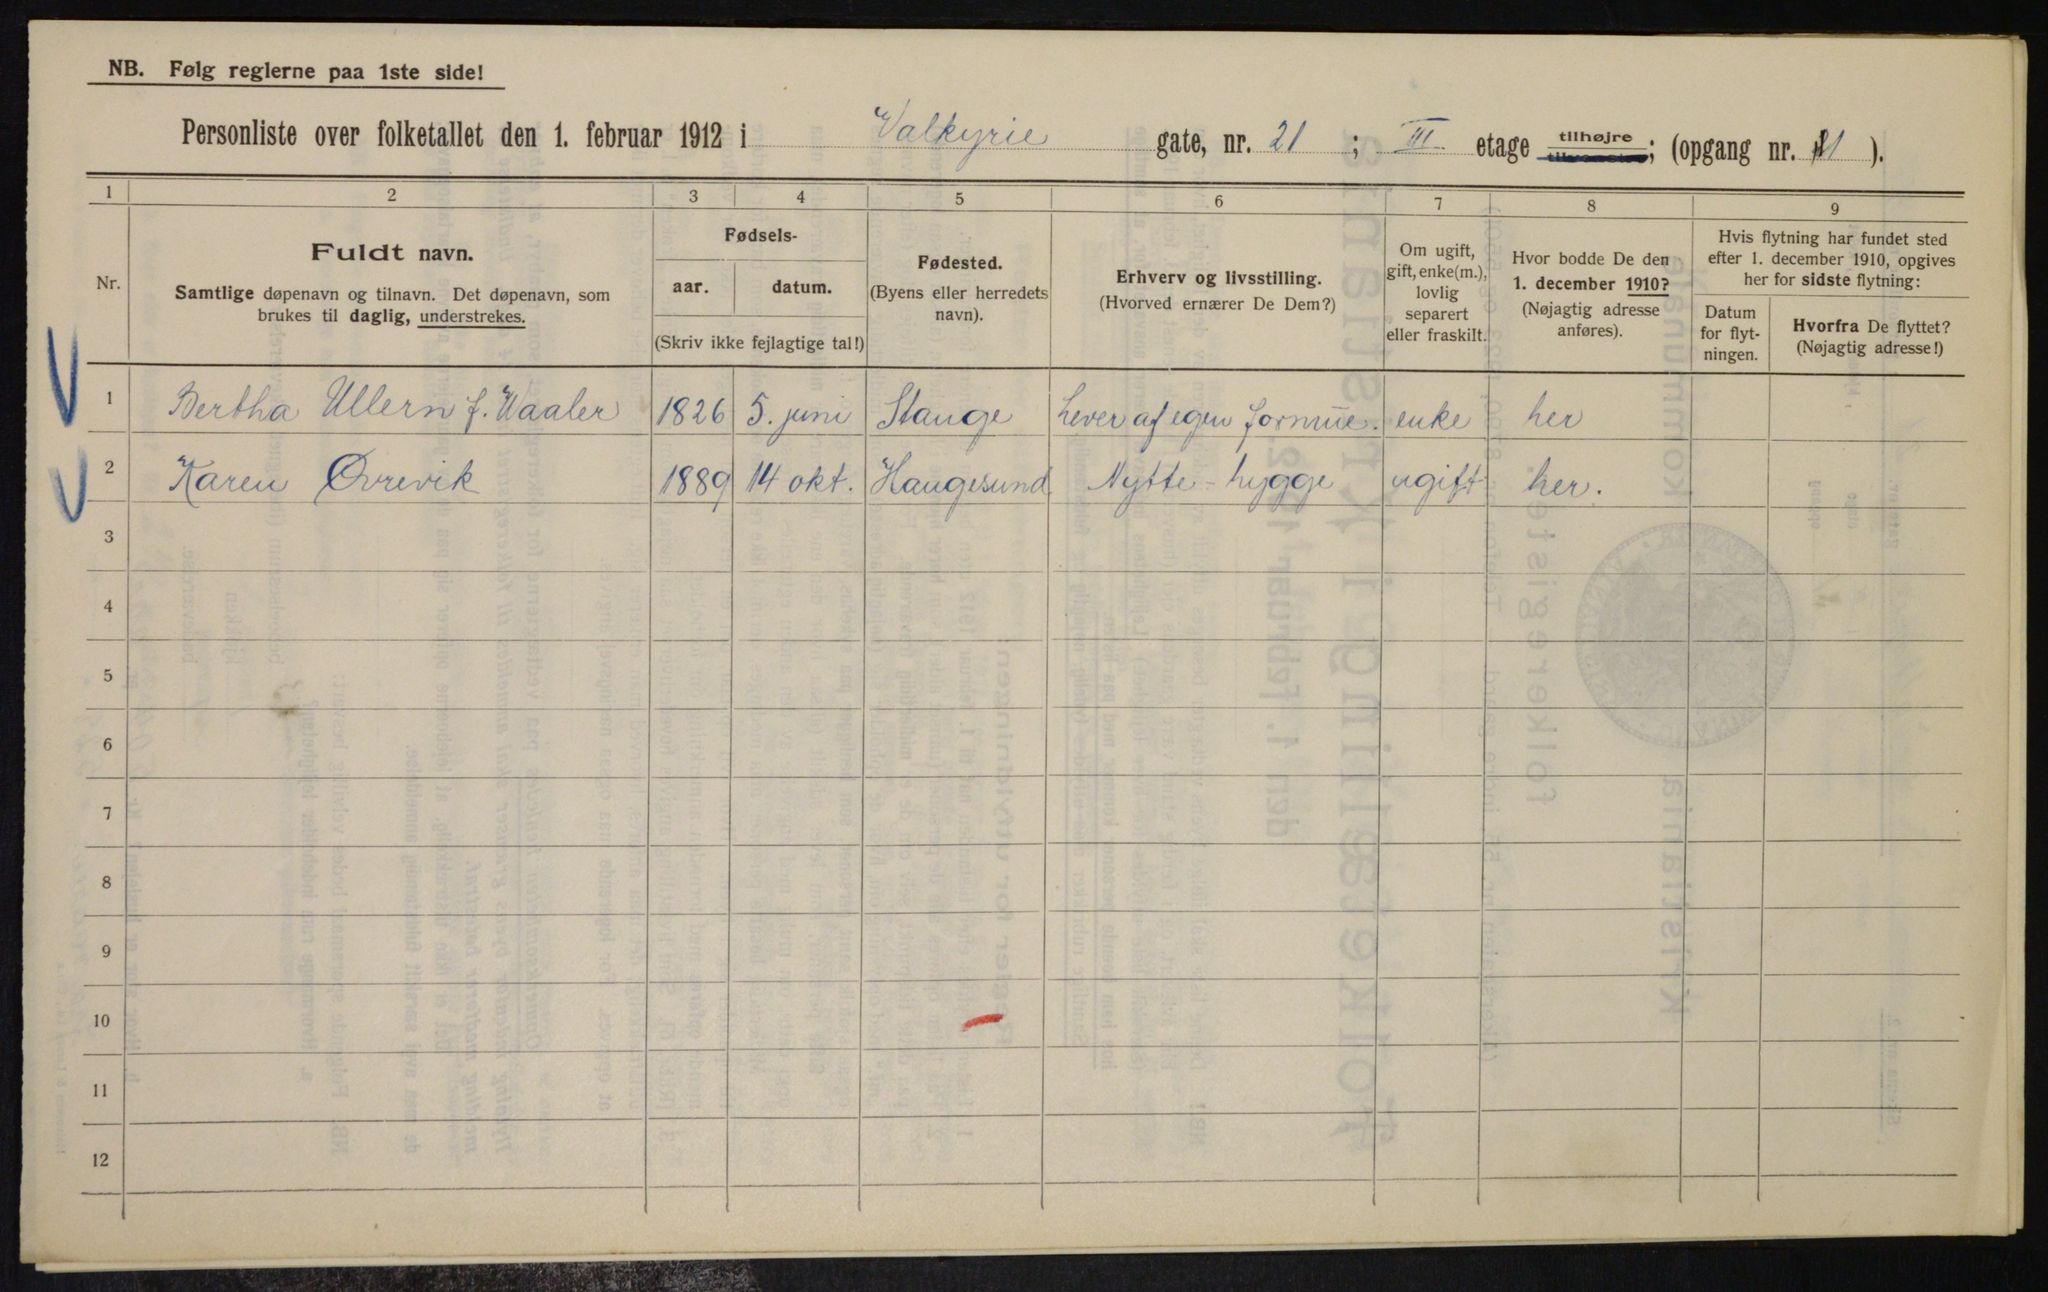 NB. Følg reglerne paa 1ste side!
Personliste over folketallet den 1. februar 1912 i Valkyrie gate, nr. 21 ; III etage tilhøjre ; (opgang nr. 21 ).
1 2 3 4 5 6 7 8 9
Nr.
Fuldt navn.
Samtlige døpenavn og tilnavn. Det døpenavn, som
brukes til daglig, understrekes.
Fødsels-
aar. datum.
(Skriv ikke fejlagtige tal!)
Fødested.
(Byens eller herredets
navn).
Erhverv og livsstilling.
(Hvorved ernærer De Dem?)
Om ugift,
gift, enke(m.),
lovlig
separert
eller fraskilt.
Hvor bodde De den
1. december 1910?
(Nøjagtig adresse
anføres).
Hvis flytning har fundet sted
efter 1. december 1910, opgives
her for sidste flytning:
Datum
for flyt-
ningen.
Hvorfra De flyttet?
(Nøjagtig adresse!)
1 Bertha Ullern f. Waaler 1826 5. juni Stange Lever af egen formue. enke her
2 Karen Øvrevik 1889 14 okt. Haugesund Nytte-hygge ugift her.
3
4
5
6
7
8
9
10
11
12